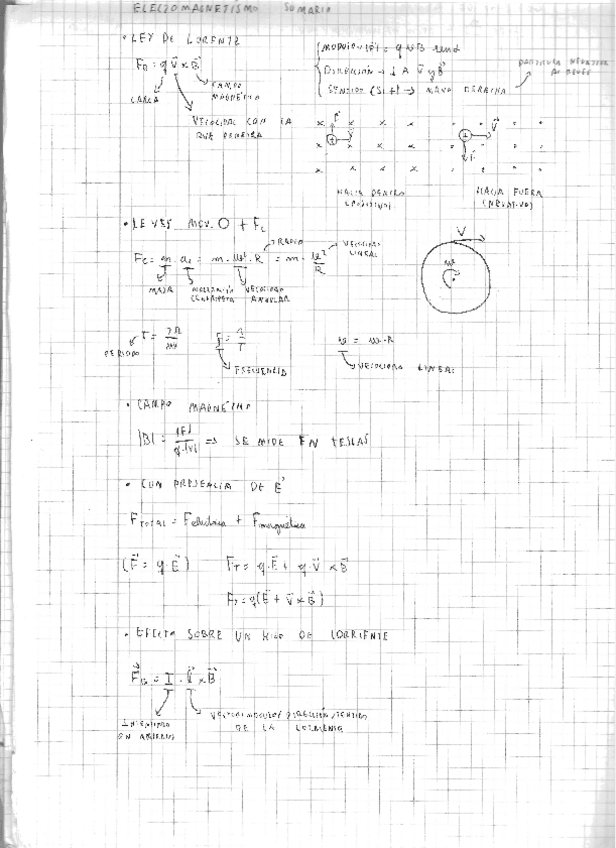 ELECTOMAGNETISMO SUMARIO
• LEY DE LORENTZ
F_B = q v⃗ × B⃗
CARGA
CAMPO MAGNÉTICO
VELOCIDAD CON LA QUE PENETRA
DIRECCIÓN → ⊥ A v⃗ y B⃗
SENTIDO (Si +) → MANO DERECHA
PARTICULA NEGATIVA AL REVES
F⃗
v⃗
HACIA DENTRO (POSITIVO)
v⃗
F⃗
HACIA FUERA (NEGATIVO)
• LEYES MOV. O + Fc
Fc = m · ac = m · w² · R = m · v²/R
RADIO
VELOCIDAD LINEAL
MASA
ACELERACIÓN CENTRIPETA
VELOCIDAD ANGULAR
V
w
T = 2π/w
PERIODO
f = 1/T
FRECUENCIA
v = w · R
VELOCIDAD LINEAL
• CAMPO MAGNÉTICO
|B| = |F|/q·|v| ⇒ SE MIDE EN TESLAS
• CON PRESENCIA DE E⃗
F TOTAL = Feléctrica + Fmagnética
(F⃗ = q·E⃗) F_T = q·E⃗ + q·v⃗ × B⃗
F_T = q(E⃗ + v⃗ × B⃗)
• EFECTO SOBRE UN HILO DE CORRIENTE
INTENSIDAD EN AMPERIOS
DE LA CORRIENTE